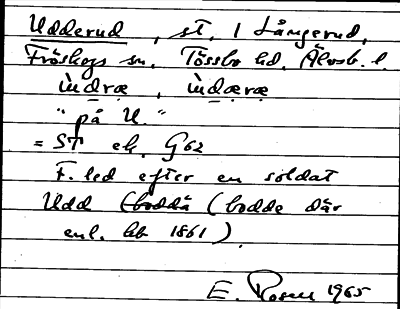 Udderud, st. i Långerud,
Fröskogs sn. Tössbo hd. Älvsb. l.
ùdræ, ùdæræ
"på U."
= ST ek. G62
F. led efter en soldat
Udd (bodde där
enl. hb 1861).
E. Rosen 1965